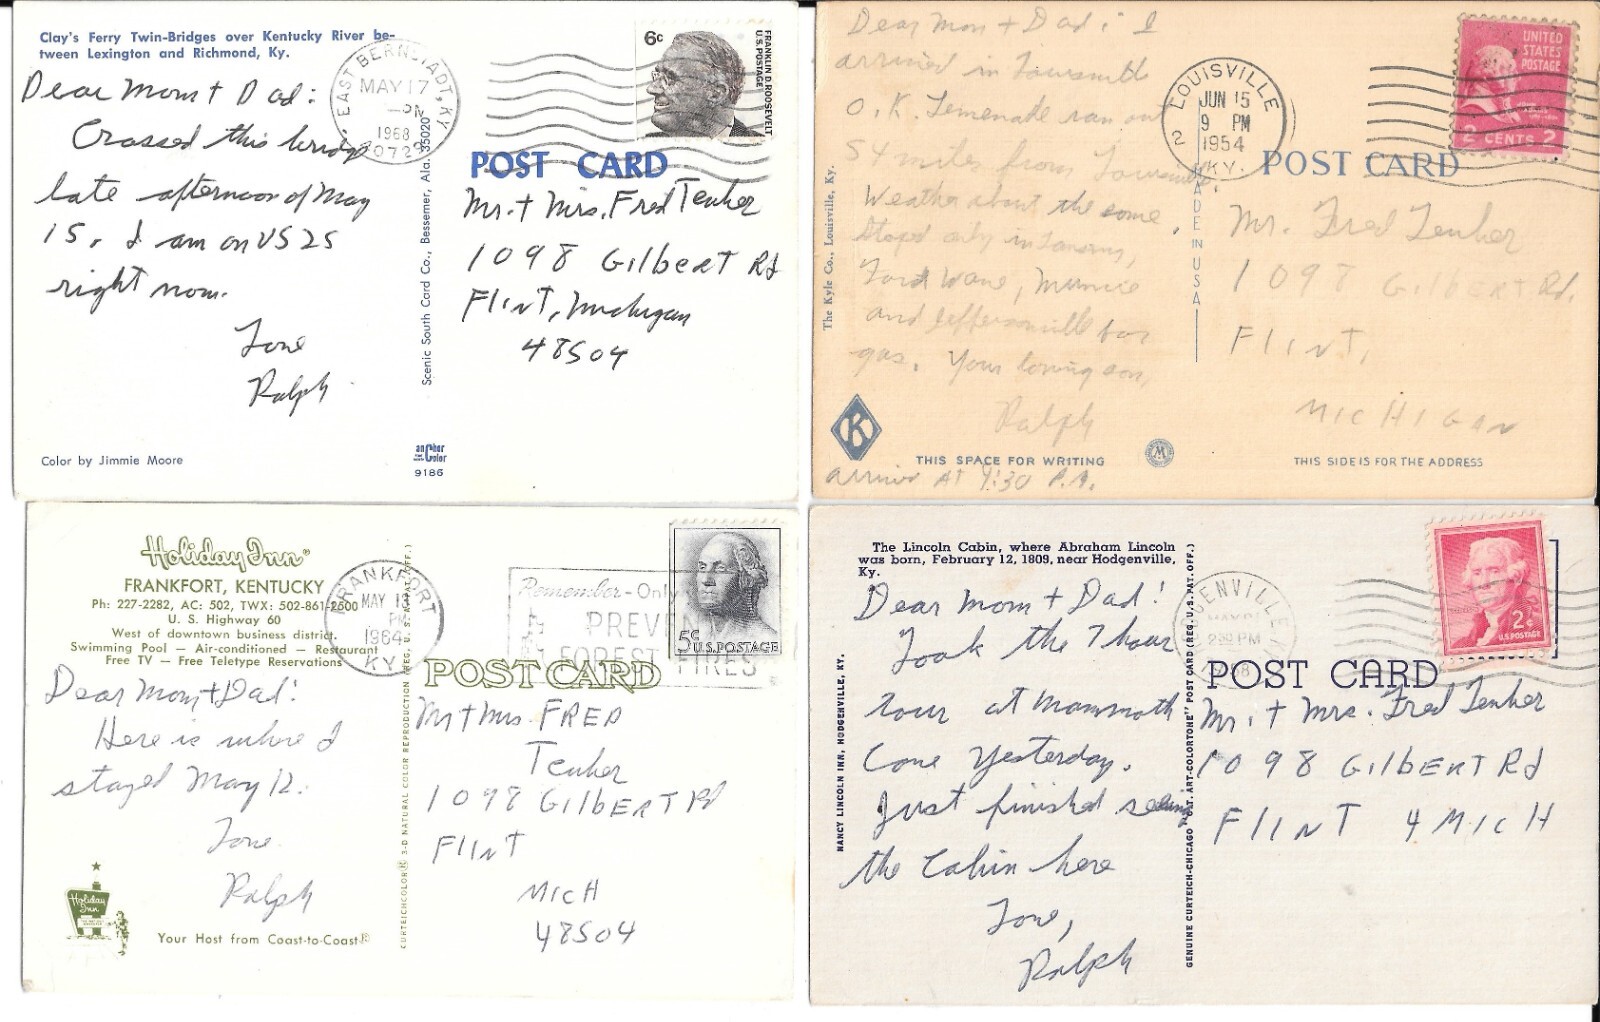 Clay's Ferry Twin-Bridges over Kentucky River be-
tween Lexington and Richmond, Ky.
Dear Mom + Dad:
Crossed this bridge
late afternoon of May
15. I am on US 25
right now.
Love
Ralph
Color by Jimmie Moore
EAST BERNSTADT, KY
MAY 17
PM
1968
40729
Scenic South Card Co., Bessemer, Ala. 35020
9186
6c
FRANKLIN D. ROOSEVELT
U.S. POSTAGE
POST CARD
Mr. + Mrs. Fred Tenher
1098 Gilbert Rd
Flint, Michigan
48504
Dear Mom + Dad: I
arrived in Louisville
O.K. Lemenade ran out
54 miles from Louisville.
Weather about the same.
Stoped only in Lansing,
Ford Wane, Muncie
and Jeffersonville for
gas. Your loving son,
Ralph
THIS SPACE FOR WRITING
arrived AT 9:30 P.M.
The Kyle Co., Louisville, Ky.
K
LOUISVILLE
JUN 15
9 PM
1954
2
KY.
MADE IN USA
M
UNITED
STATES
POSTAGE
2 CENTS 2
POST CARD
Mr. Fred Tenher
1098 Gilbert Rd.
Flint,
Michigan
THIS SIDE IS FOR THE ADDRESS
Holiday Inn®
FRANKFORT, KENTUCKY
Ph: 227-2282, AC: 502, TWX: 502-861-2600
U. S. Highway 60
West of downtown business district.
Swimming Pool — Air-conditioned — Restaurant
Free TV — Free Teletype Reservations
Dear Mom + Dad!
Here is where I
stayed May 12.
Love
Ralph
Holiday Inn
Your Host from Coast-to-Coast®
FRANKFORT
MAY 13
PM
1964
KY
CURTEICHCOLOR® 3-D NATURAL COLOR REPRODUCTION (REG. U.S.A. PAT. OFF.)
Remember - Only
PREVENT
FOREST FIRES
5c
U.S. POSTAGE
POST CARD
Mr + Mrs FRED
Tenher
1098 Gilbert Rd
Flint
Mich
48504
The Lincoln Cabin, where Abraham Lincoln
was born, February 12, 1809, near Hodgenville,
Ky.
Dear Mom + Dad!
Took the 7 hour
tour at Mammoth
Cave Yesterday.
Just finished seeing
the Cabin here
Love,
Ralph
NANCY LINCOLN INN, HODGENVILLE, KY.
GENUINE CURTEICH-CHICAGO "C.T. ART-COLORTONE" POST CARD (REG. U.S. PAT. OFF.)
GENVILLE
230 PM
2c
U.S. POSTAGE
POST CARD
Mr. + Mrs. Fred Tenher
1098 Gilbert Rd
Flint 4 Mich